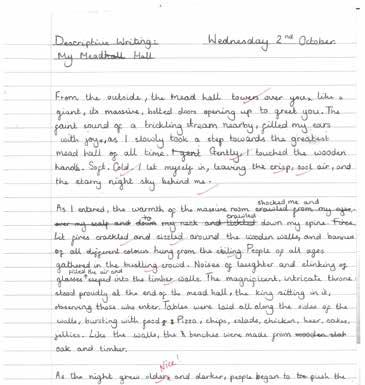 Descriptive Writing: Wednesday 2nd October
My Meadhall Hall
From the outside, the mead hall towers over you, like a
giant, its massive, bolted doors opening up to greet you. The
faint sound of a trickling stream nearby, filled my ears
with joy, as I slowly took a step towards the greatest
mead hall of all time. I gent Gently, I touched the wooden
hands. Soft. Cold. I let myself in, leaving the crisp, cool air, and
the starry night sky behind me.
shocked me and
As I entered, the warmth of the massive room crawled from my
crawled
over my scalp and down to my neck and down my spine. Fires
lit fires crackled and sizzled around the wooden walls, and banners
of all different colours hung from the ceiling. People of all ages
gathered in the bustling crowd. Noises of laughter and clinking of
filled the air and
glasses seeped into the timber walls. The magnificent, intricate throne
stood proudly at the end of the mead hall, the king sitting in it,
observing those who enter. Tables were laid all along the sides of the
walls, bursting with food; Pizza, chips, salads, chicken, beer, cakes,
jellies. Like the walls, the benches were made from wooden
oak and timber.
Nice!
As the night grew older and darker, people began to push the